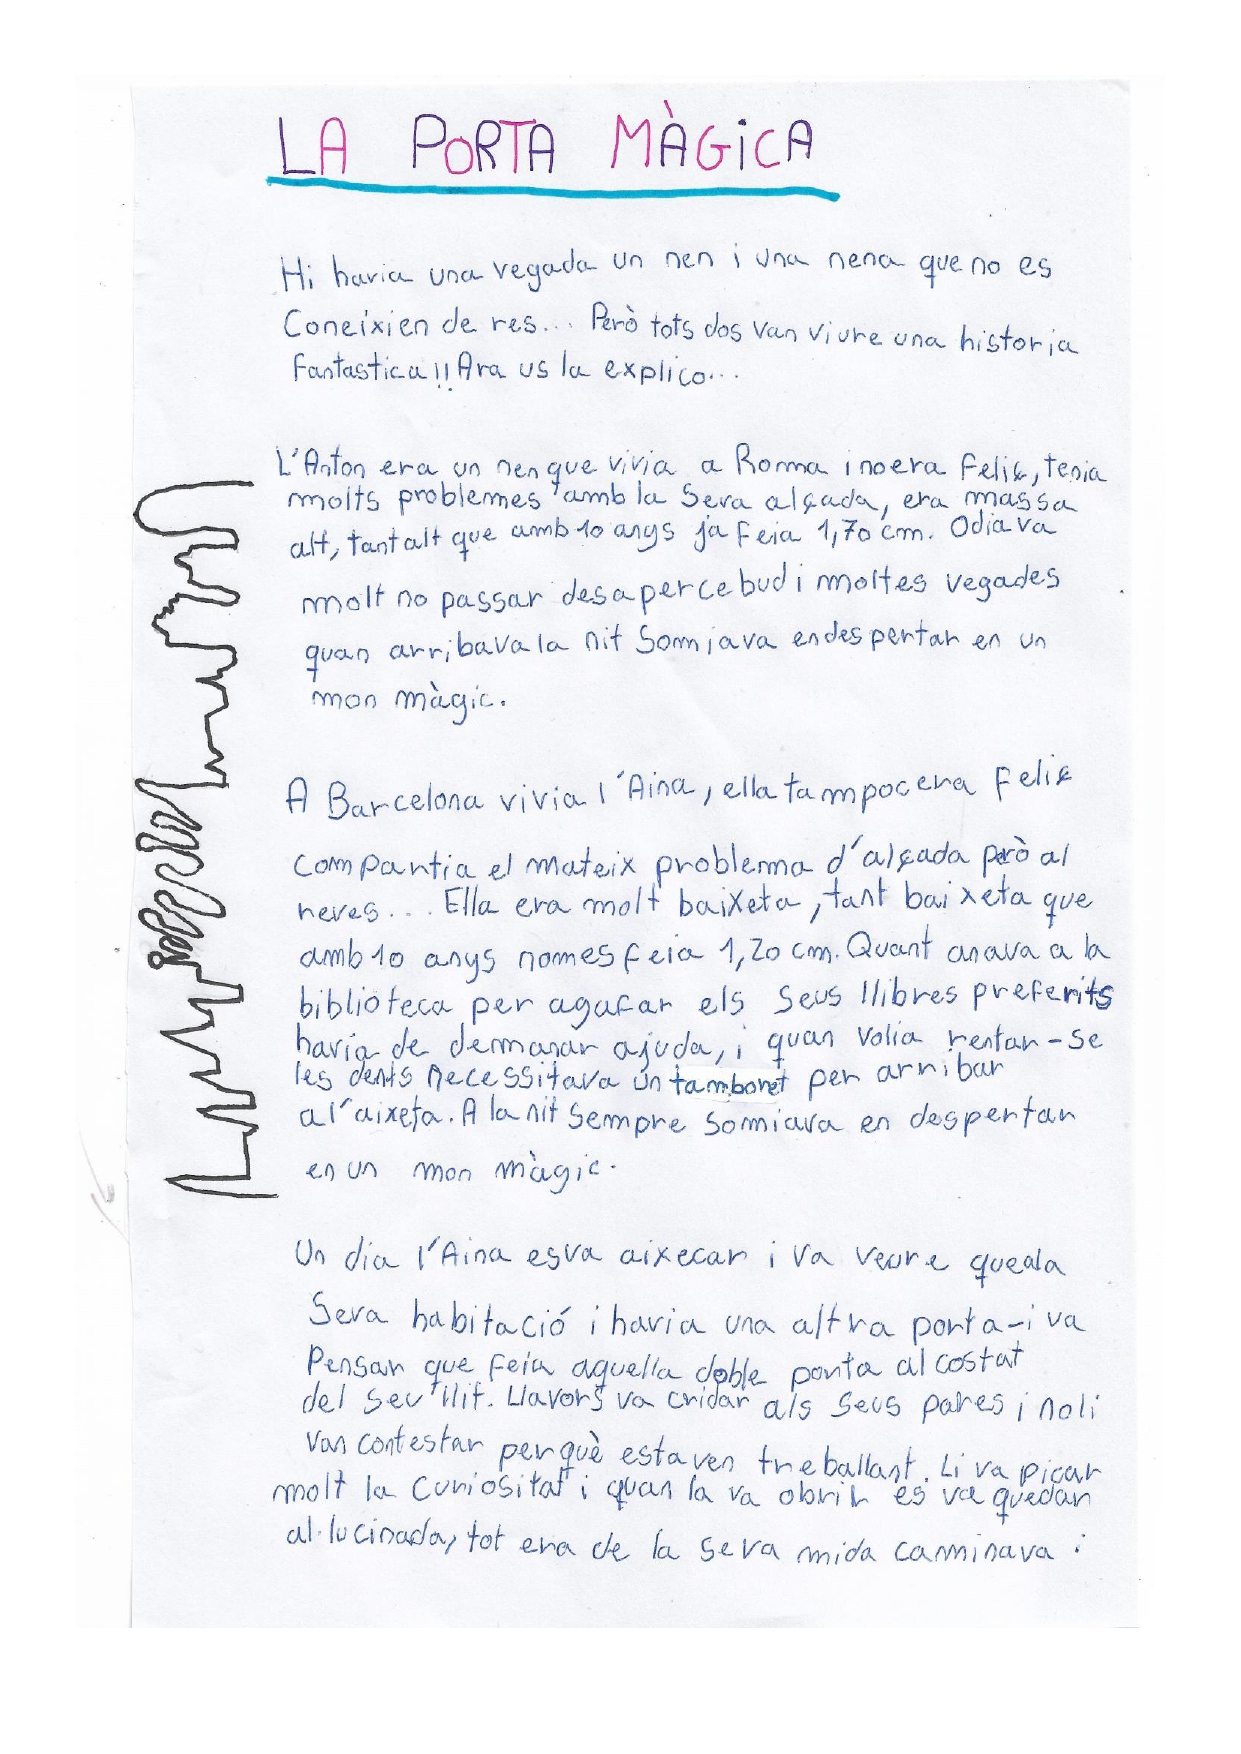 LA PORTA MÀGICA
Hi havia una vegada un nen i una nena que no es
Coneixien de res... Però tots dos van viure una historia
fantastica!! Ara us la explico...
L'Anton era un nen que vivia a Roma i no era feliç, tenia
molts problemes amb la seva alçada, era massa
alt, tant alt que amb 10 anys ja feia 1,70 cm. Odiava
molt no passar desapercebud i moltes vegades
quan arribava la nit somiava en despertar en un
mon màgic.
A Barcelona vivia l'Aina, ella tampoc era feliç
compartia el mateix problema d'alçada però al
reves... Ella era molt baixeta, tant baixeta que
amb 10 anys nomes feia 1,20 cm. Quant anava a la
biblioteca per agafar els seus llibres preferits
havia de demanar ajuda, i quan volia rentar-se
les dents necessitava un tamboret per arribar
a l'aixeta. A la nit sempre somiava en despertar
en un mon màgic.
Un dia l'Aina es va aixecar i va veure que a la
Seva habitació i havia una altra porta i va
Pensar que feia aquella doble porta al costat
del seu llit. Llavors va cridar als seus pares i no li
van contestar perquè estaven treballant. Li va picar
molt la curiositat i quan la va obrir es va quedar
al·lucinada, tot era de la seva mida caminava i